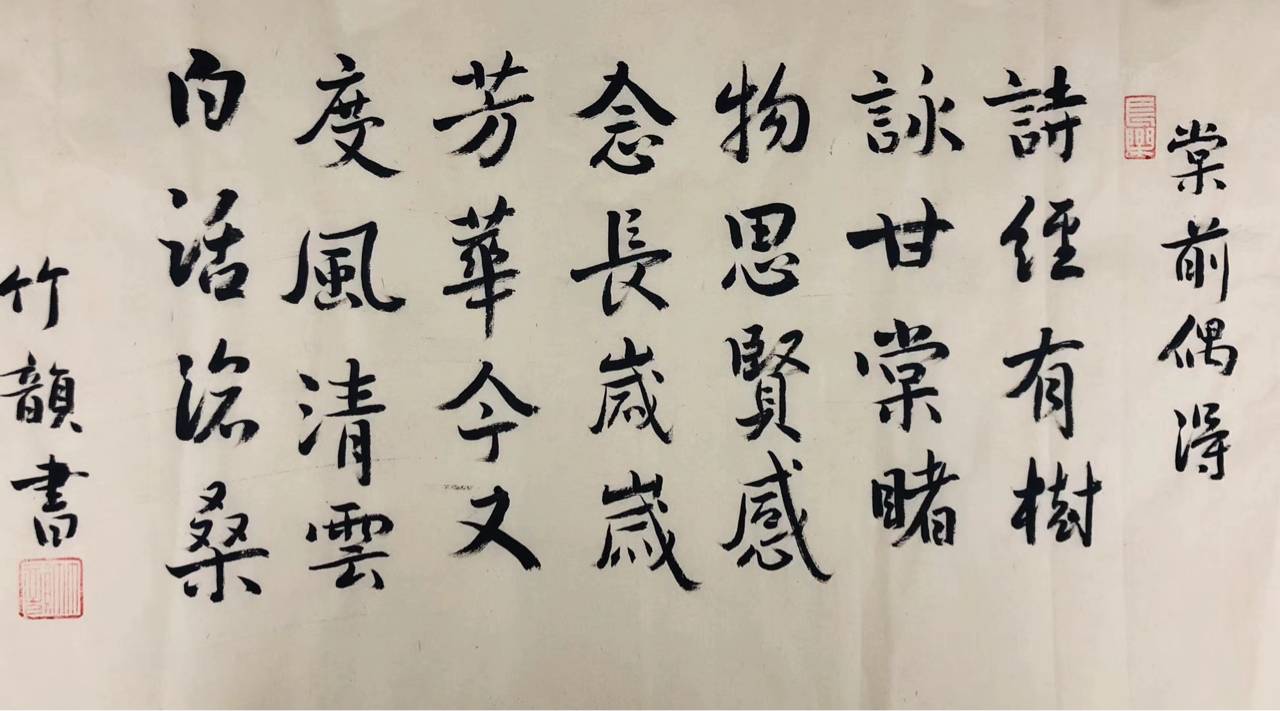 棠前偶得
詩經有樹
詠甘棠睹
物思賢感
念長歲歲
芳華今又
度風清雲
白話滄桑
竹韻書